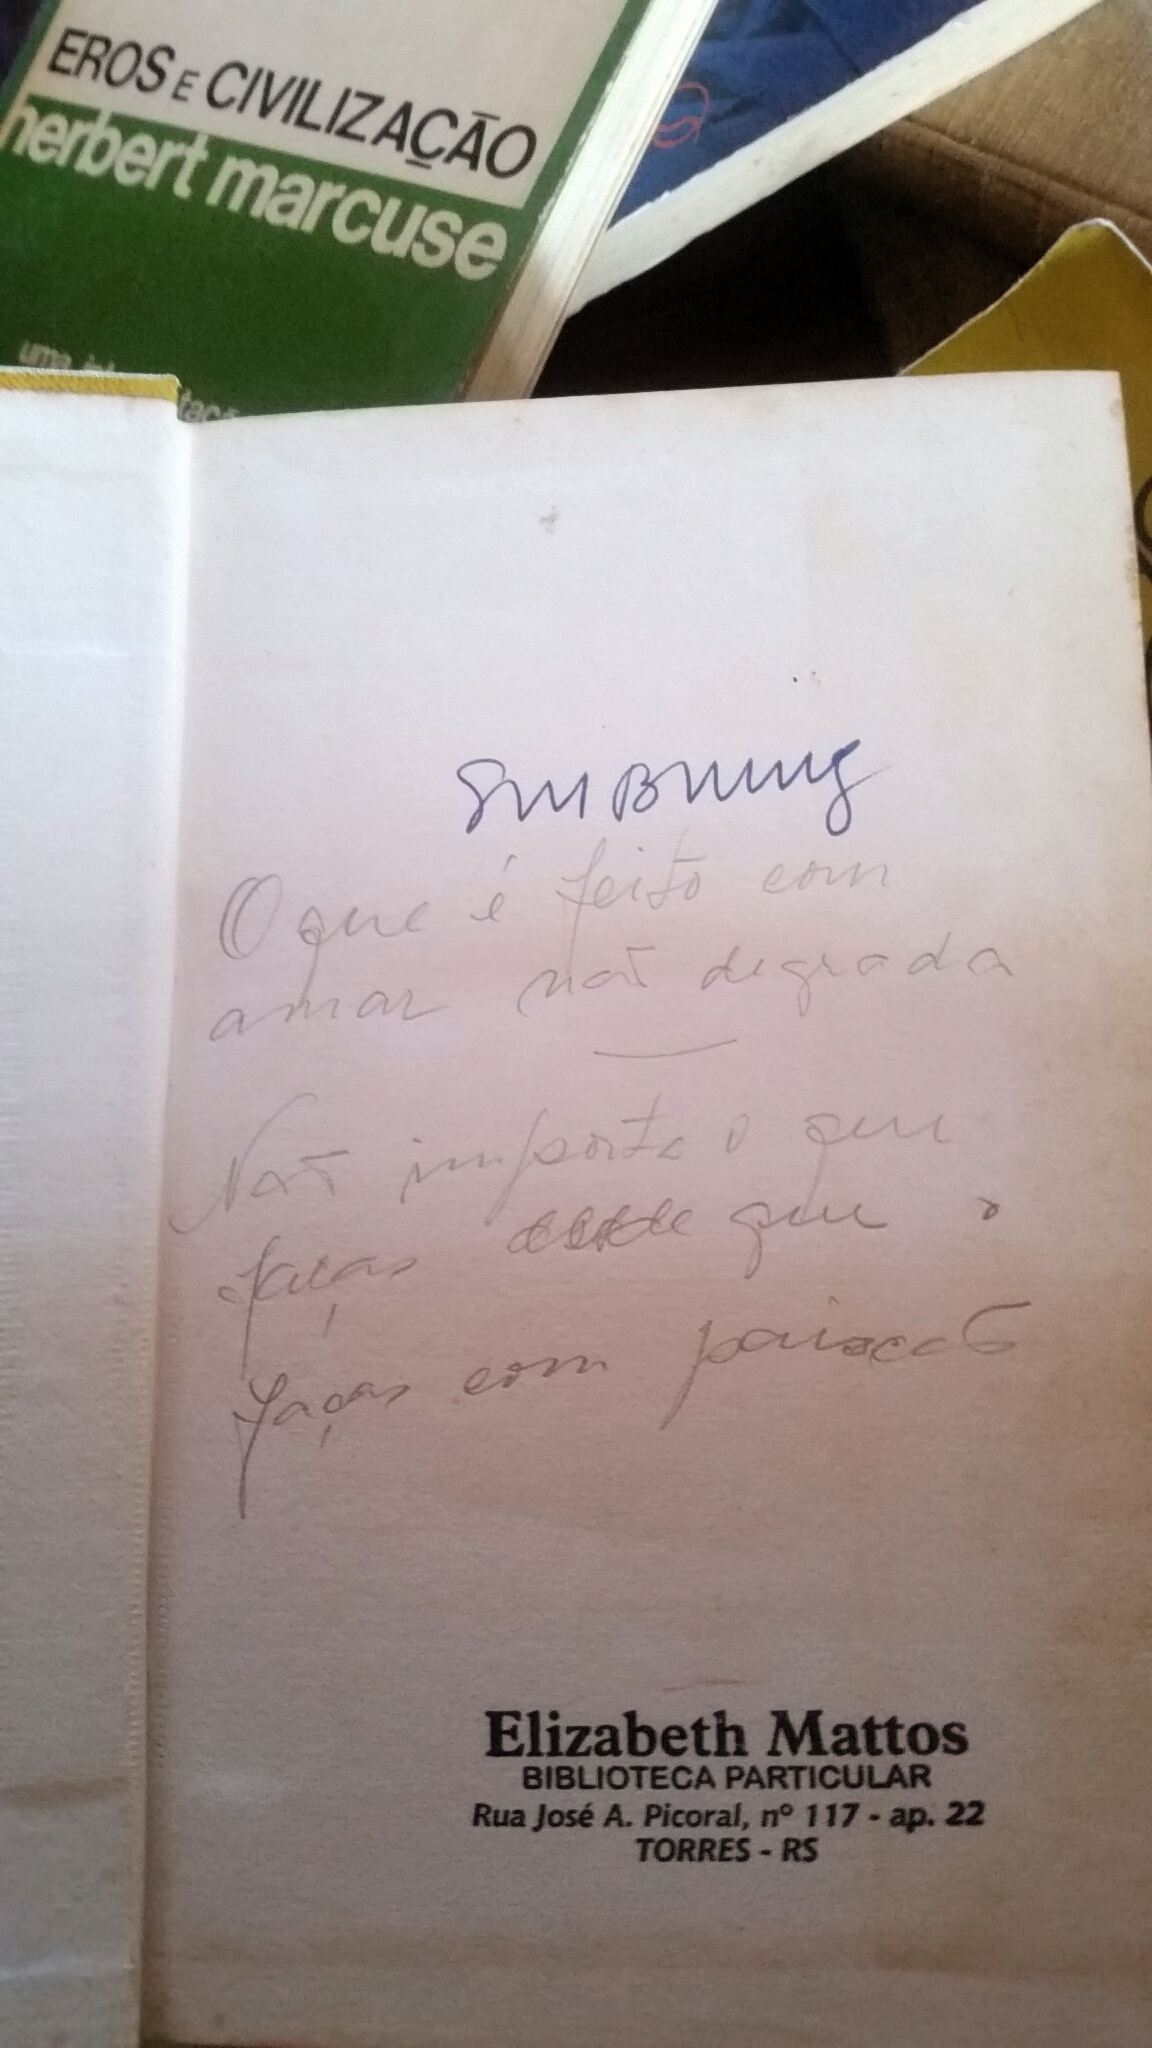 EROS E CIVILIZAÇÃO
herbert marcuse
uma
O que é feito com
amor não degrada
Não importa o que
faças desde que o
faças com paixão
Elizabeth Mattos
BIBLIOTECA PARTICULAR
Rua José A. Picoral, nº 117 - ap. 22
TORRES - RS